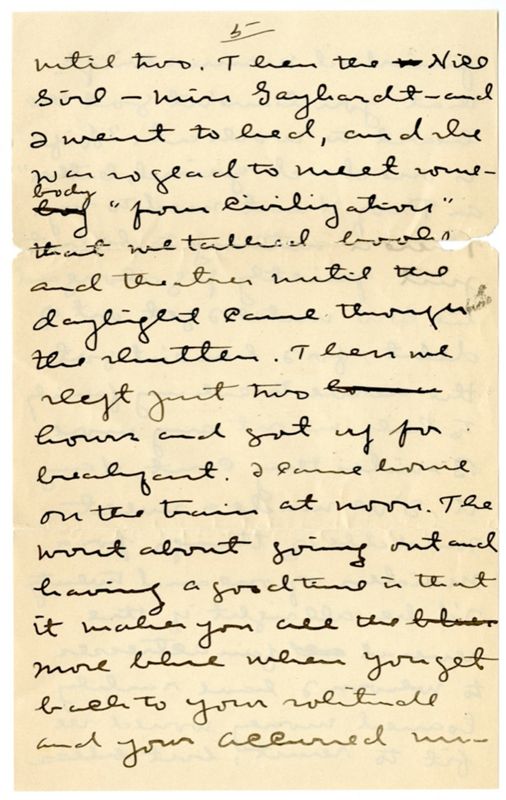 5
until two. Then the Nell
Girl - Miss Gayhardt - and
I went to bed, and she
was so glad to meet some-
body
"from civilization"
that we talked books
and theatres until the
daylight came through
the shutters. Then we
slept just two
hours and got up for
breakfast. I came home
on the train at noon. The
worst about going out and
having a good time is that
it makes you all the blues
more blue when you get
back to your solitude
and your accursed un-